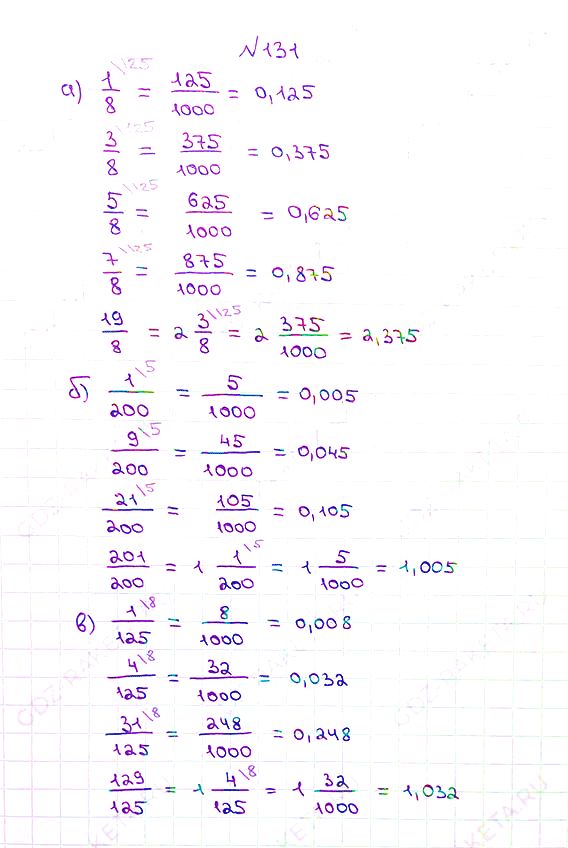 N131
а) 1/8 \125 = 125/1000 = 0,125
3/8 \125 = 375/1000 = 0,375
5/8 \125 = 625/1000 = 0,625
7/8 \125 = 875/1000 = 0,875
19/8 = 2 3/8 \125 = 2 375/1000 = 2,375
б) 1/200 \5 = 5/1000 = 0,005
9/200 \5 = 45/1000 = 0,045
21/200 \5 = 105/1000 = 0,105
201/200 = 1 1/200 \5 = 1 5/1000 = 1,005
в) 1/125 \8 = 8/1000 = 0,008
4/125 \8 = 32/1000 = 0,032
31/125 \8 = 248/1000 = 0,248
129/125 = 1 4/125 \8 = 1 32/1000 = 1,032